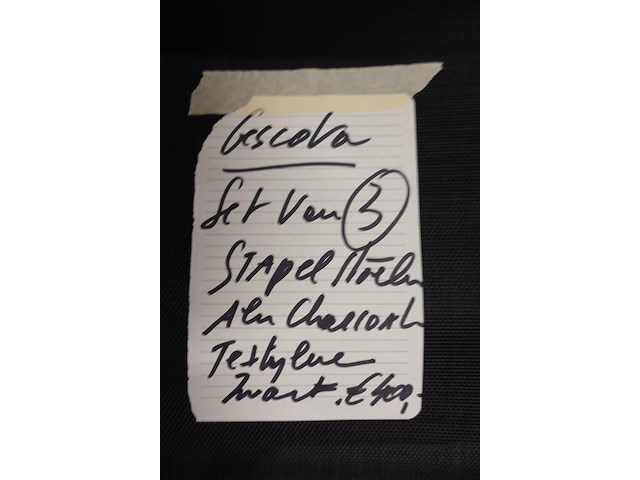 Gescova
Set Van 3
STApel Stoelen
Alu Charcoal
Textylene
Zwart. € 400,-